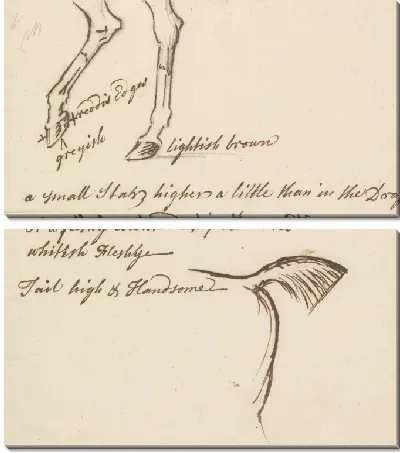 Hreddis Edges
greyish
lightish brown
a small Star higher a little than in the Drag
whitish Fleshye
Tail high & Handsome